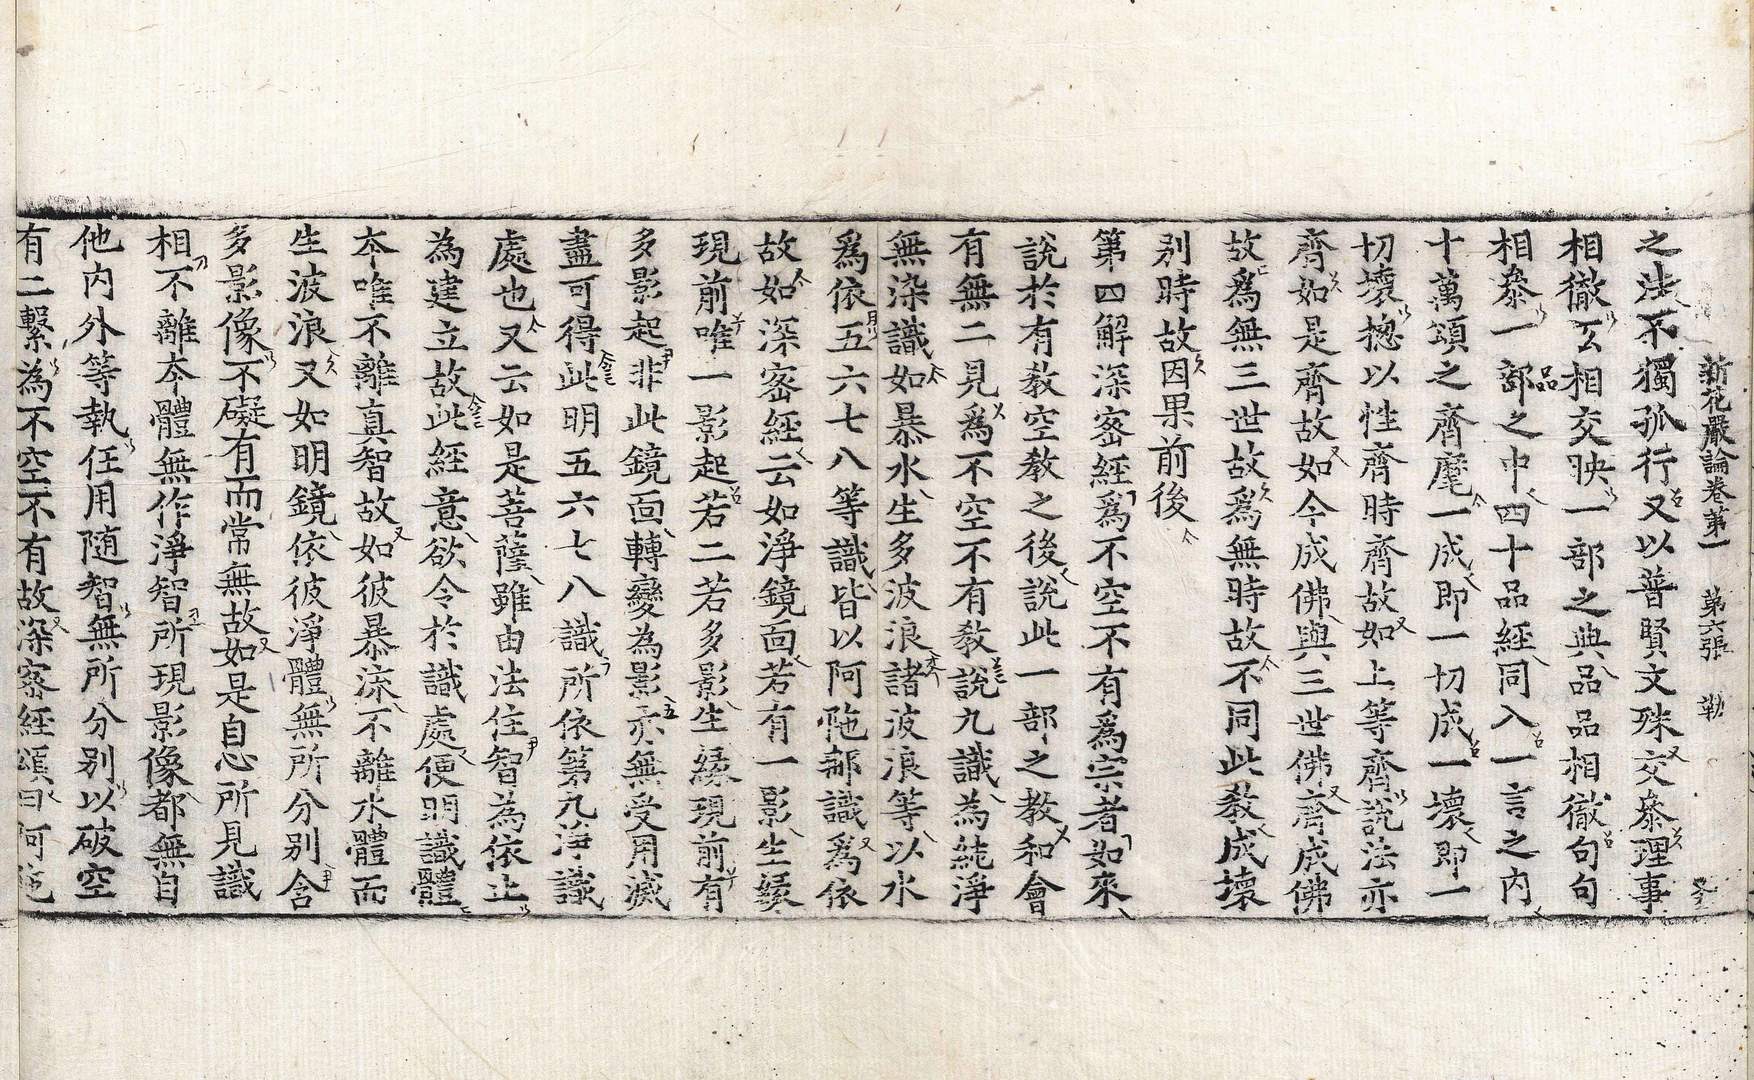 新花嚴論卷第一 第六張 勒
之法不獨孤行又以普賢文殊交叅理事
相徹玄相交映一部之典品品相徹句句
相叅一部之中四十品經同入一言之内
十萬頌之齊麾一成即一切成一壞即一
切壞揔以性齊時齊故如上等齊說法亦
齊如是齊故如今成佛與三世佛齊成佛
故爲無三世故爲無時故不同此教成壞
別時故因果前後
第四解深宻經爲不空不有爲宗者如來
說於有教空教之後說此一部之教和會
有無二見爲不空不有教說九識為純淨
無染識如暴水生多波浪諸波浪等以水
爲依五六七八等識皆以阿陁那識爲依
故如深宻經云如淨鏡面若有一影生緣
現前唯一影起若二若多影生緣現前有
多影起非此鏡面轉變為影亦無受用滅
盡可得此明五六七八識所依第九淨識
處也又云如是菩薩雖由法住智為依止
為建立故此經意欲令於識處便明識體
夲唯不離真智故如彼暴流不離水體而
生波浪又如明鏡依彼淨體無所分别含
多影像不礙有而常無故如是自心所見識
相不離夲體無作淨智所現影像都無自
他内外等執任用随智無所分别以破空
有二繫為不空不有故深宻經頌曰阿陁